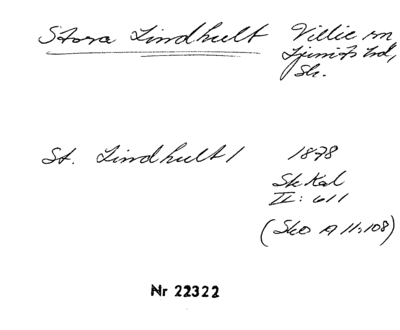 Stora Lindhult Villie sn
Ljunits hd,
Sk.
St. Lindhult 1 1878
Sk Kal
II: 611
(SkO A 11:108)
Nr 22322